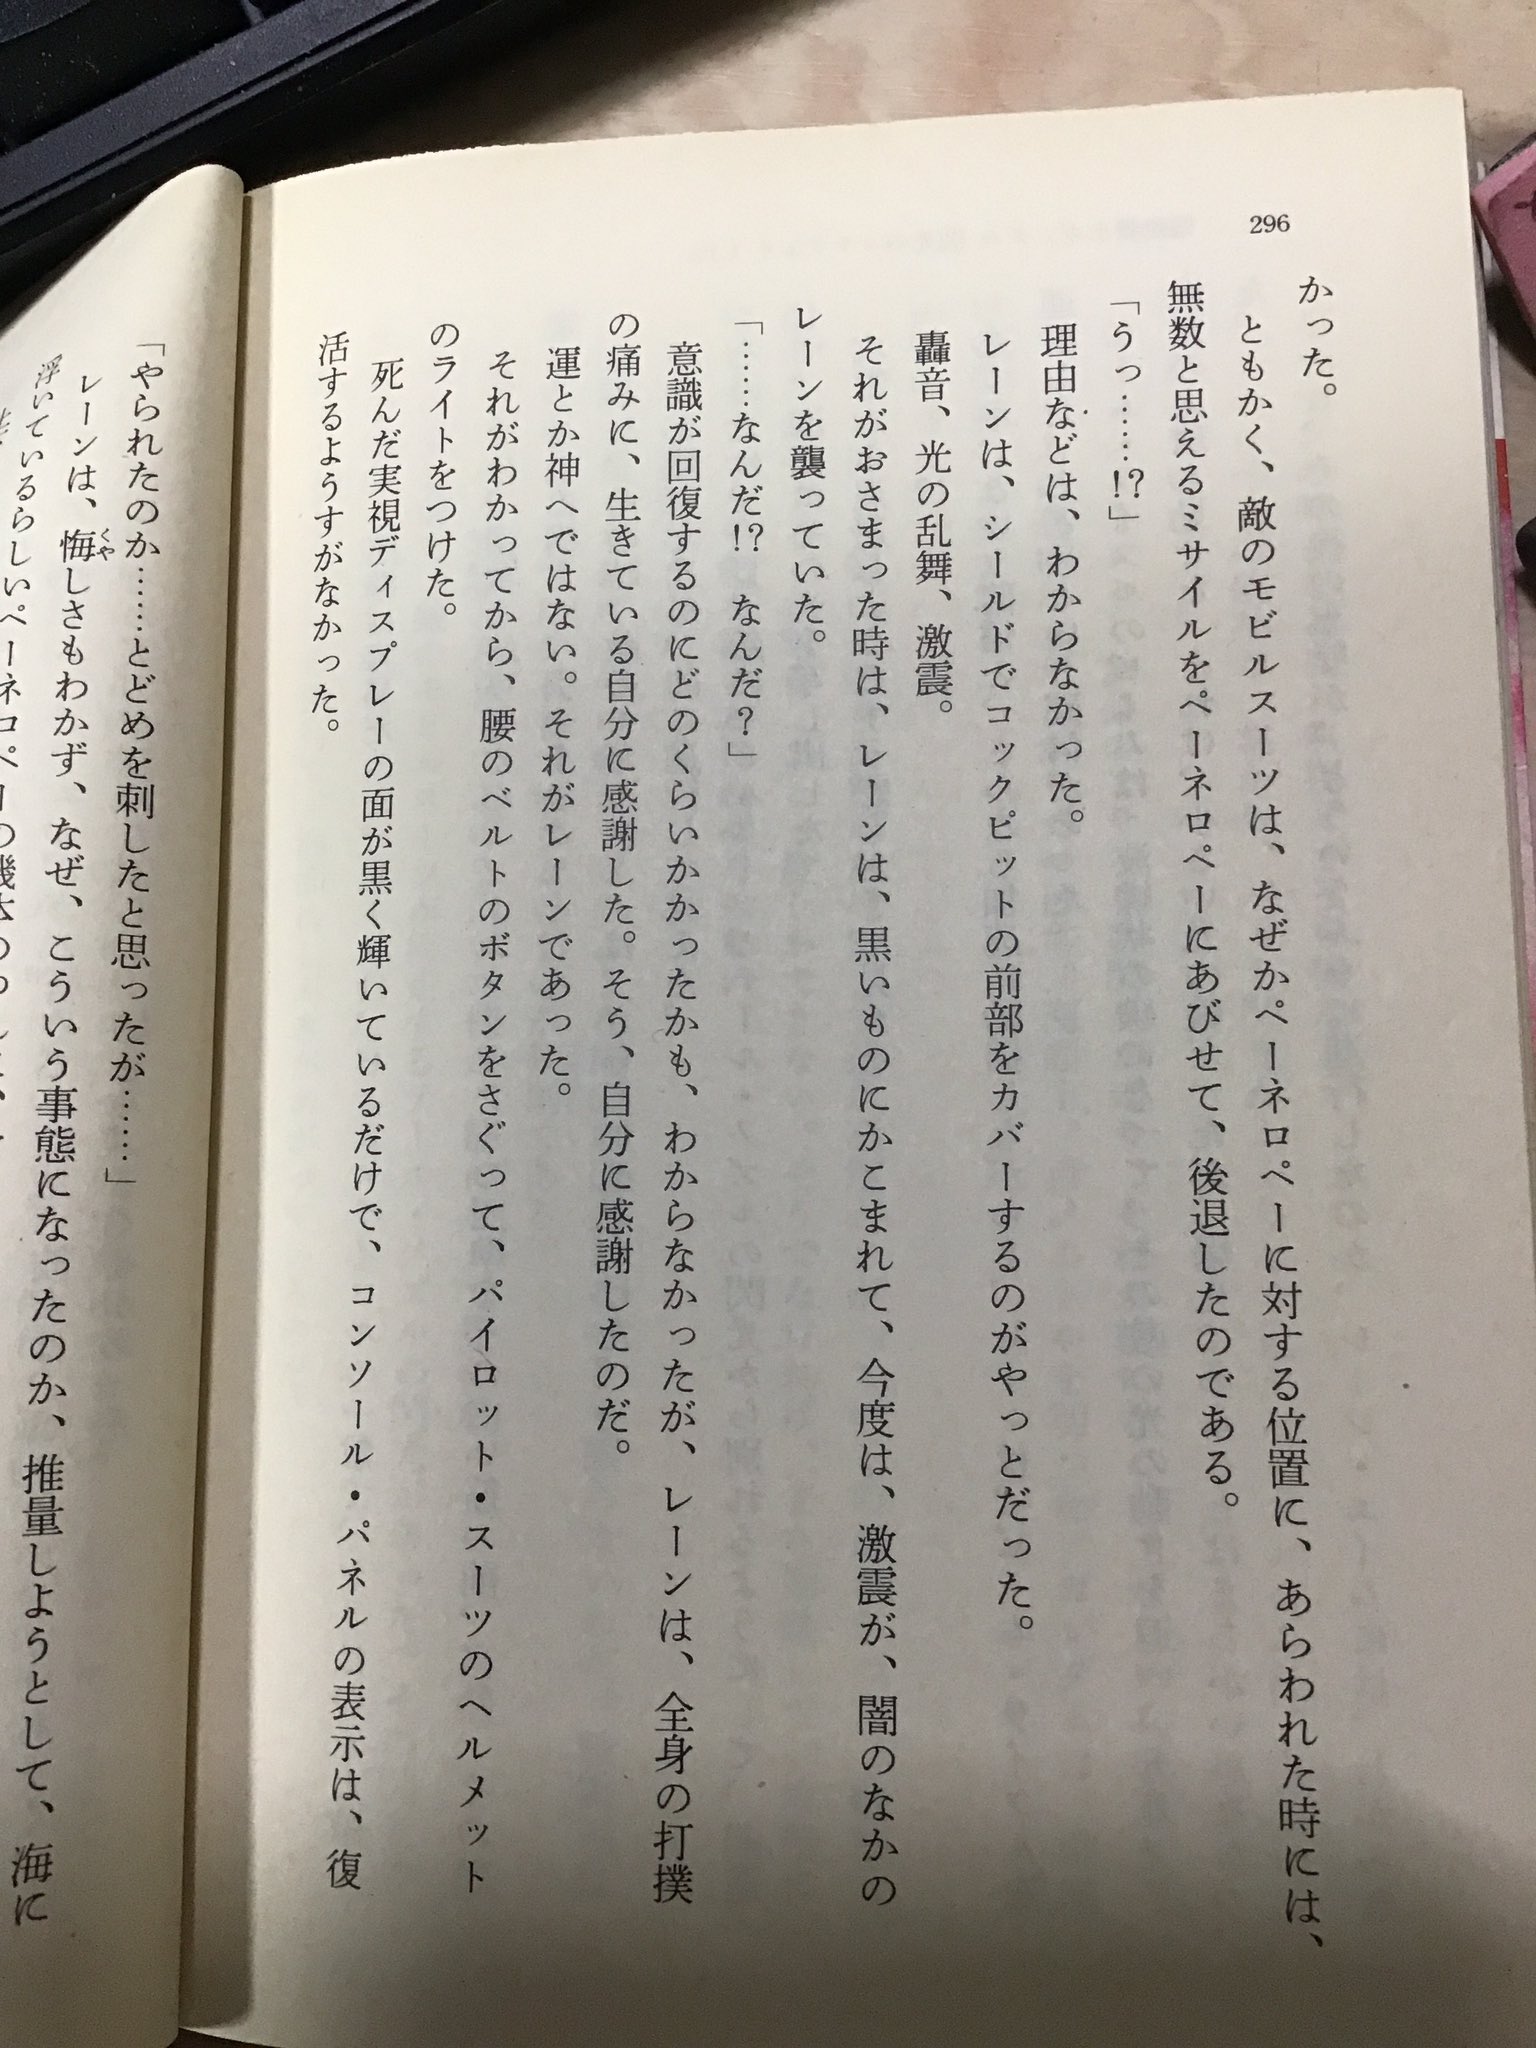 296
かった。
ともかく、敵のモビルスーツは、なぜかペーネロペーに対する位置に、あらわれた時には、
無数と思えるミサイルをペーネロペーにあびせて、後退したのである。
「うっ……!?」
理由などは、わからなかった。
レーンは、シールドでコックピットの前部をカバーするのがやっとだった。
轟音、光の乱舞、激震。
それがおさまった時は、レーンは、黒いものにかこまれて、今度は、激震が、闇のなかの
レーンを襲っていた。
「……なんだ!? なんだ？」
意識が回復するのにどのくらいかかったかも、わからなかったが、レーンは、全身の打撲
の痛みに、生きている自分に感謝した。そう、自分に感謝したのだ。
運とか神へではない。それがレーンであった。
それがわかってから、腰のベルトのボタンをさぐって、パイロット・スーツのヘルメット
のライトをつけた。
死んだ実視ディスプレーの面が黒く輝いているだけで、コンソール・パネルの表示は、復
活するようすがなかった。
「やられたのか……とどめを刺したと思ったが……」
レーンは、悔しさもわかず、なぜ、こういう事態になったのか、推量しようとして、海に
浮いているらしいペーネロペーの機体の